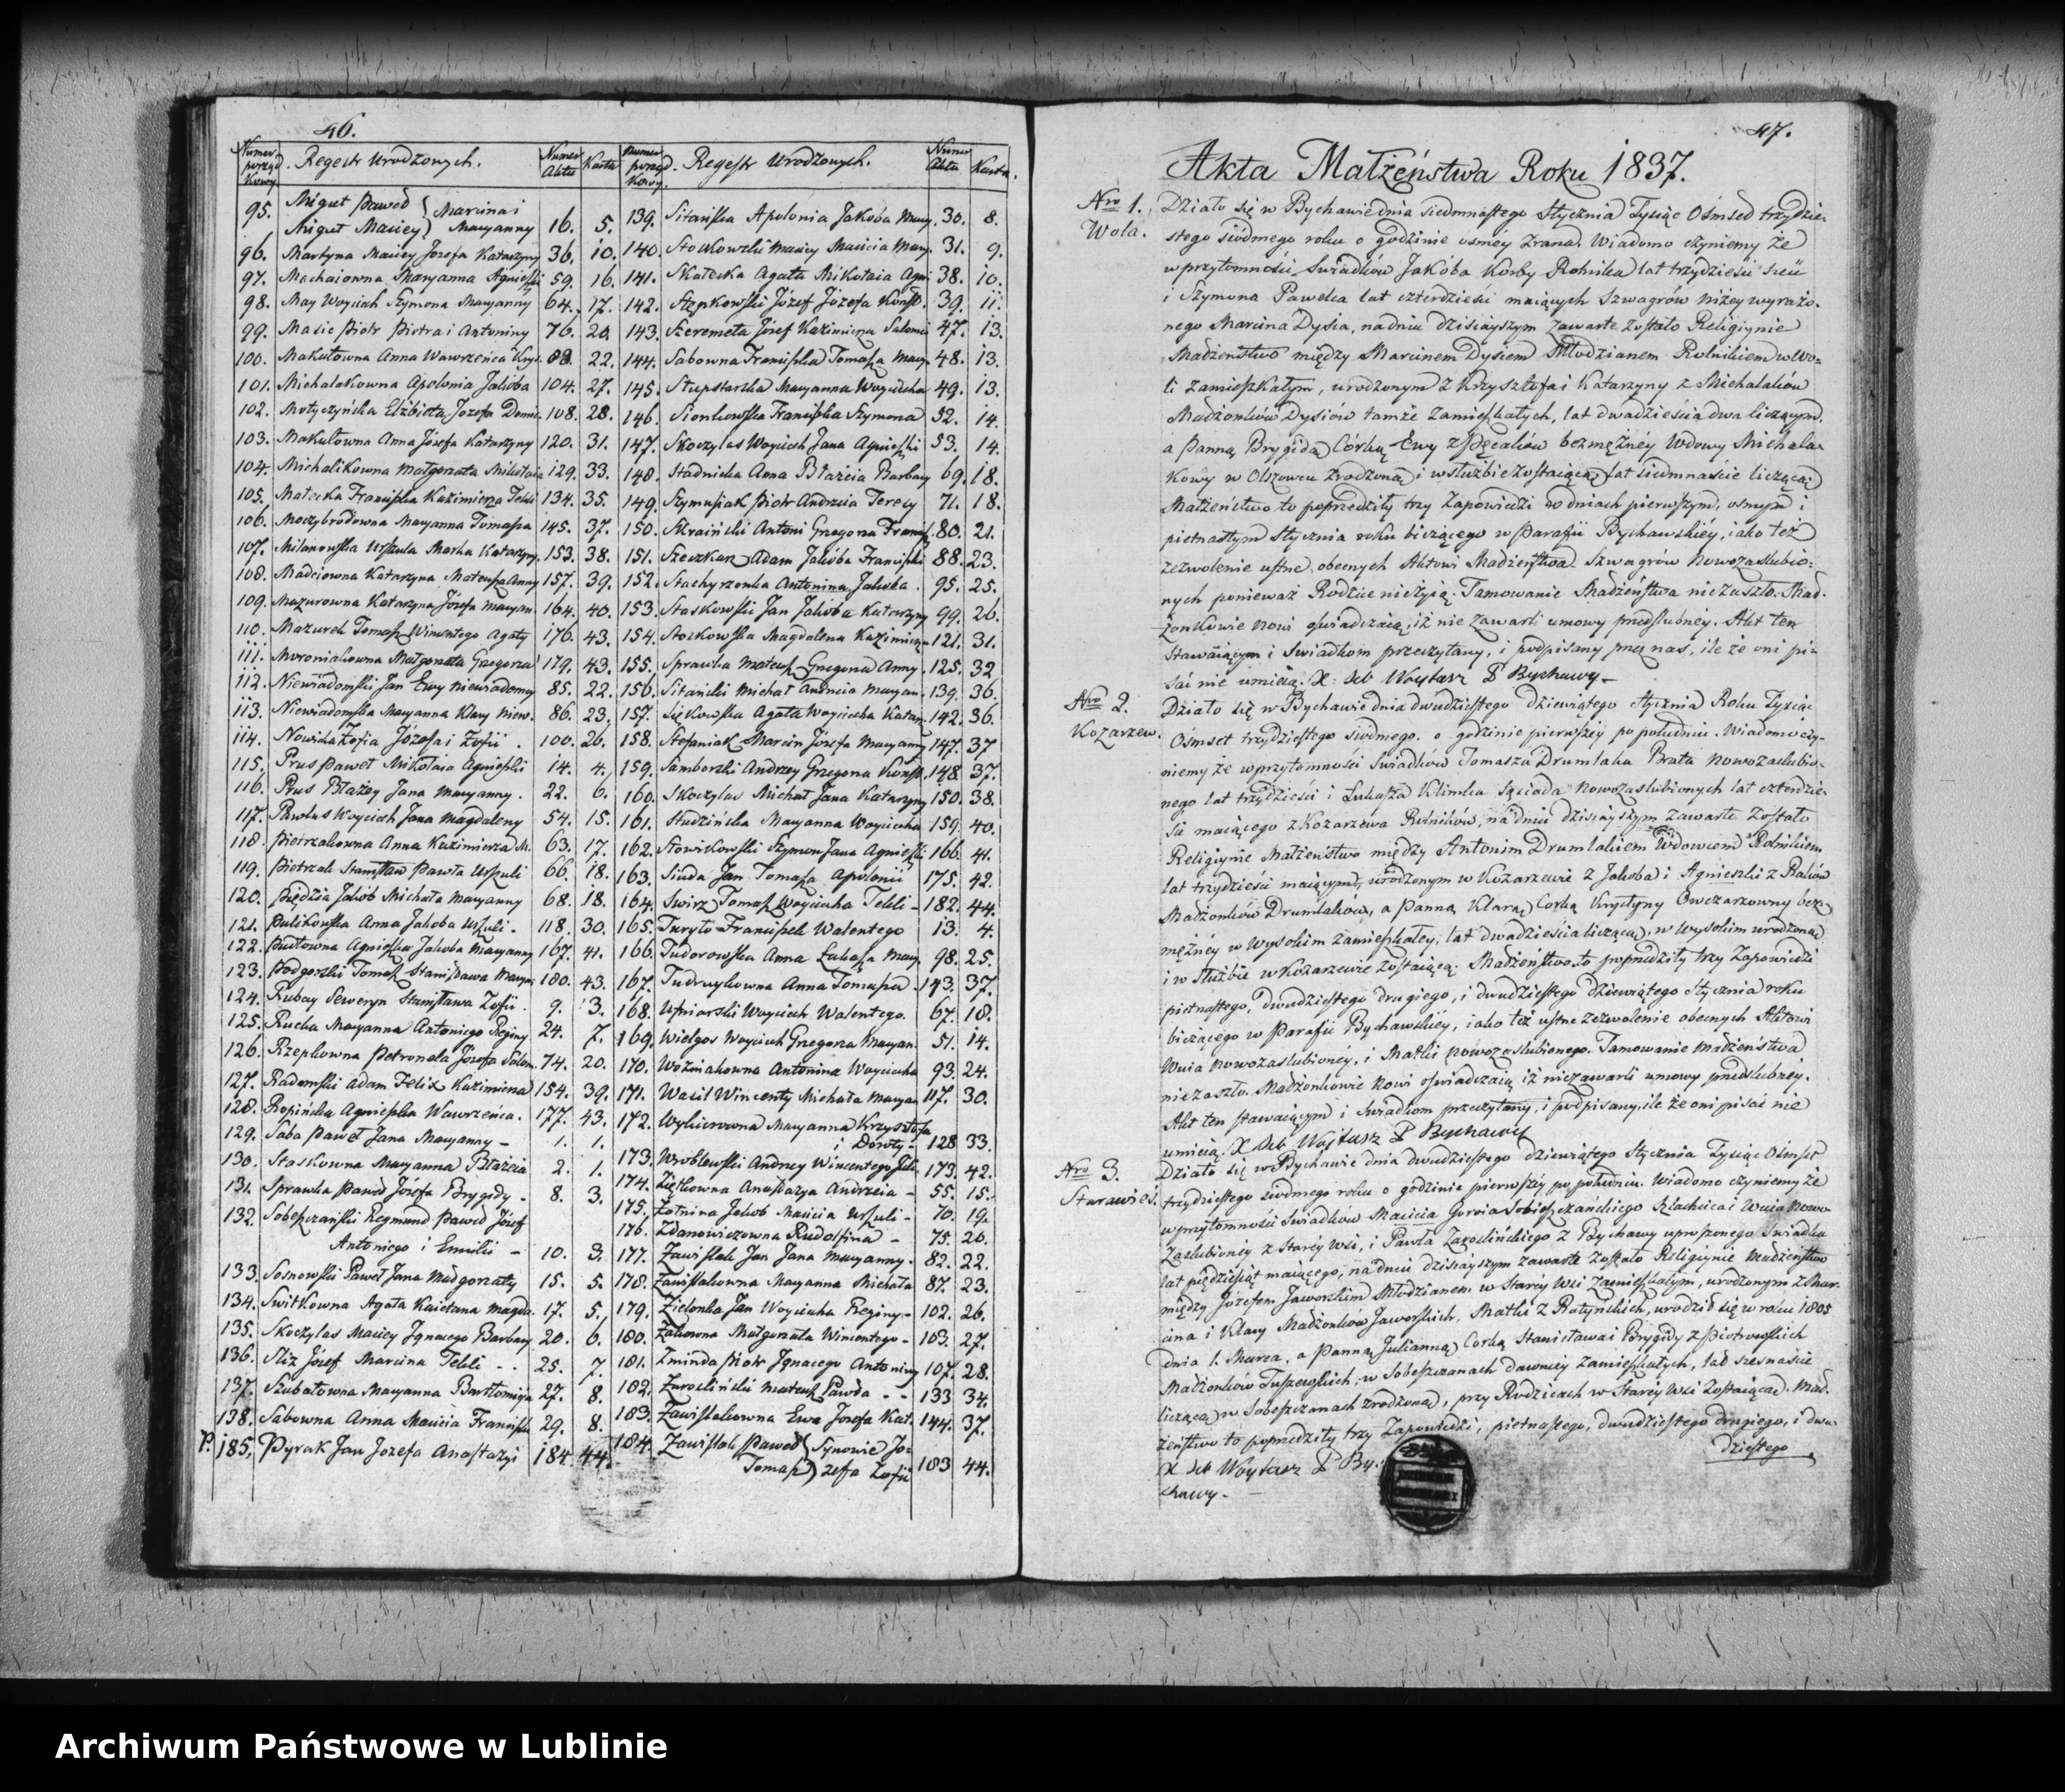 46.
Numer porząd. kowy. Regestr Urodzonych. Numer Aktu Karta
95. Migut Paweł / Migut Maciey } Marcina i Maryanny 16. 5.
96. Martyna Maciey Jozefa Katarzyny 36. 10.
97. Machaiowna Maryanna Agnieszki 59. 16.
98. May Woyciech Szymona Maryanny 64. 17.
99. Masic Piotr Piotra i Antoniny 76. 20.
100. Makułowna Anna Wawrzeńca 22.
101. Michalakowna Apolonia Jakóba 104. 27.
102. Motyczyńska Elżbieta Jozefa 108. 28.
103. Makułowna Anna Józefa Katarzyny 120. 31.
104. Michalikowna Małgorzata Mikołaia 129. 33.
105. Małecka Franciszka Kazimierza Tekli 134. 35.
106. Moczybrodowna Maryanna Tomasza 145. 37.
107. Milanowska Urszula Marka Katarzyny. 153. 38.
108. Madeiowna Katarzyna Mateusza Anny 157. 39.
109. Mazurowna Katarzyna Józefa Maryan. 164. 40.
110. Mazurek Tomasz Winentego Agaty 176. 43.
111. Moroniakowna Małgorzata Grzegorza 179. 43.
112. Niewiadomski Jan Ewy niewiadomey 85. 22.
113. Niewiadomska Maryanna Klary Niew. 86. 23.
114. Nowicka Zofia Józefa i Zofii. 100. 26.
115. Prus Paweł Mikołaia Agnieszki 14. 4.
116. Prus Błażey Jana Maryanny. 22. 6.
117. Pawlus Woyciech Jana Magdaleny 54. 15.
118. Pietrzakowna Anna Kazimierza M. 63. 17.
119. Piotrzak Stanisław Pawła Urszuli 66. 18.
120. Piędzia Jakób Michała Maryanny 68. 18.
121. Pulikowska Anna Jakoba Urszuli. 118. 30.
122. Agnieszka Jakoba Maryanny 167. 41.
123. Podgorski Tomasz Stanisława Maryan. 180. 43.
124. Rubay Seweryn Stanisława Zofii. 9. 3.
125. Rucka Maryanna Antoniego Reginy 24. 7.
126. Rzepkowna Petronela Józefa Salom. 74. 20.
127. Radomski Adam Felix Kazimierza 154. 39.
128. Ropińska Agnieszka Wawrzeńca. 177. 43.
129. Saba Paweł Jana Maryanny - 1. 1.
130. Staskowna Maryanna Błażeia 2. 1.
131. Sprawka Paweł Józefa Brygidy - 8. 3.
132. Sobeszczański Regmund Paweł Józef
Antoniego i Emilii - 10. 3.
133. Sosnowski Paweł Jana Małgorzaty 15. 5.
134. Switkowna Agata Kaietana Magda. 17. 5.
135. Skoczylas Maciey Jgnacego Barbary 20. 6.
136. Sliz Józef Marcina Tekli - . 25. 7.
137. Szubałowna Maryanna Bartłomieja 27. 8.
138. Sabowna Anna Macieia Franciszki 29. 8.
P. 185. Pyrak Jan Jozefa Anastazyi 184. 44.
Numer porząd. kowy. Regestr Urodzonych. Numer Aktu Karta.
139. Sitarska Apolonia Jakóba Mary. 30. 8.
140. Stoczkowski Maciey Macieia Mary. 31. 9.
141. Skałecka Agata Mikołaia Agni. 38. 10.
142. Stępkowski Józef Józefa Konst. 39. 11.
143. Szeremeta Józef Kazimierza Salomei 47. 13.
144. Sabowna Franciszka Tomasza Mary. 48. 13.
145. Stupstarska Maryanna Woyciecha 49. 13.
146. Sionkowska Franciszka Szymona 52. 14.
147. Skoczylas Woyciech Jana Agnieszki 53. 14.
148. Stadnicka Anna Błażeia Barbary 69. 18.
149. Szymusiak Piotr Andrzeia Teresy 71. 18.
150. Skraiński Antoni Grzegorza Francisz. 80. 21.
151. Szeczkarz Adam Jakóba Franciszki 88. 23.
152. Stachyrzonka Antonina Jakóba. 95. 25.
153. Staskowski Jan Jakóba Katarzyny 99. 26.
154. Stoczkowska Magdalena Kazimierza 121. 31.
155. Sprawka Mateusz Grzegorza Anny. 125. 32
156. Sitarski Michał Andrzeia Maryan. 139. 36.
157. Agata Woyciecha Katarz. 142. 36.
158. Stefaniak Marcin Józefa Maryanny 147. 37
159. Samborski Andrzey Grzegorza Konst. 148. 37.
160. Skoczylas Michał Jana Katarzyny 150. 38.
161. Studzińska Maryanna Woyciecha 159. 40.
162. Słowikowski Szymon Jana Agnieszki 166. 41.
163. Siuda Jan Tomasza Apolonii 175. 42.
164. Swirz Tomasz Woyciecha Tekli - 182. 44.
165. Turyło Franciszek Walentego 13. 4.
166. Tudorowska Anna Łukasza Mary. 98. 25.
167. Tudruykowna Anna Tomasza - 143. 37.
168. Uśniarski Woyciech Walentego. 67. 18.
169. Wielgos Woyciech Grzegorza Maryan. 51. 14.
170. Woźniakowna Antonina Woyciecha 93. 24.
171. Wasil Wincenty Michała Maryan. 117. 30.
172. Maryanna Krzysztofa
i Doroty - 128. 33.
173. Wroblewski Andrzey Wincentego Jul. 173. 42.
174. Ziętkowna Anastazya Andrzeia - 55. 15.
175. Żołnina Jakób Macieia Urszuli - 70. 19.
176. Zdanowiczowna Rudolfina - 75. 20.
177. Zawislak Jan Jana Maryanny. 82. 22.
178. Zawislakowna Maryanna Michała 87. 23.
179. Zielonka Jan Woyciecha Reginy - 102. 26.
180. Żakowna Małgorzata Wincentego - 103. 27.
181. Żminda Piotr Jgnacego Antoniny 107. 28.
182. Zarosliński Mateusz Pawła - - 133 34.
183. Zawislakowna Ewa Jozefa Kat. 144. 37.
184. Zawislak Paweł } Synowie Jo-
Tomasz } zefa Zofii 183 44.
47.
Akta Małżeństwa Roku 1837.
Nro 1. Wola.
Działo się w Bychawie dnia siedmnastego Stycznia Tysiąc Ośmset trzydzie-
stego siódmego roku o godzinie osmey zrana. Wiadomo czyniemy że
w przytomności Swiadków Jakóba Korby Rolnika lat trzydzieści sześć
i Szymona Pawelca lat czterdzieści maiących Szwagrów niżey wyrażo-
nego Marcina Dysia, na dniu dzisieyszym zawarte zostało Religiynie
Małżeństwo między Marcinem Dysiem Młodzianem Rolnikiem w Wo-
li zamieszkałym, urodzonym z Krzysztofa i Katarzyny z Michalaków
Małżonków Dysiów tamże zamieszkałych, lat dwadzieścia dwa liczącym.
a Panną Brygidą Córką Ewy z Pęcaków bezmężnéy Wdowy Michala-
kowy w Olszowcu zrodzoną i w służbie zostaiącą lat siedmnaście liczącą
Małżeństwo to poprzedziły trzy Zapowiedzi w dniach pierwszym, osmym i
pietnastym Stycznia roku bieżącego w Parafii Bychawskiéy, iako też
zezwolenie ustne obecnych Aktowi Małżeństwa Szwagrów Nowozaslubio-
nych ponieważ Rodzice nieżyią. Tamowanie Małżeństwa niezaszło. Mał-
żonkowie nowi oświadczaią, iż nie zawarli umowy przedslubnéy. Akt ten
stawaiącym i Swiadkom przeczytany, i podpisany przez nas, ile że oni pi-
sać nie umieią. X: Seb Woytasz P Bychawy -
Nro 2. Kozarzew.
Działo się w Bychawie dnia dwudziestego dziewiątego Stycznia Roku Tysiąc
Ośmset trzydziestego siódmego. o godzinie pierwszéy po południu. Wiadomo czy-
niemy że w przytomności Swiadków Tomasza Drumlaka Brata nowozaslubio-
nego lat trzydzieści i Łukasza Klimka Sąsiada Nowozaslubionych lat czterdzie-
ści maiącego z Kozarzewa Rolników, na dniu dzisieyszym zawarte zostało
Religiynie Małżeństwo między Antonim Drumlakiem Wdowcem Rolnikiem
lat trzydzieści maiącym, urodzonym w Kozarzewie z Jakoba i Agnieszki z Raków
Małżonków Drumlaków, a Panną Klarą Corką Krystyny Owczarzowny bez-
mężnéy w Wysokim zamieszkałey, lat dwadzieścia liczącą, w Wysokim urodzoną
i w służbie w Kozarzewie zostaiącą. Małżeństwo to poprzedziły trzy Zapowiedzi
pietnastego, dwudziestego drugiego, i dwudziestego dziewiątego Stycznia roku
bieżącego w Parafii Bychawskiéy, iako też ustne zezwolenie obecnych Aktowi
Wuia nowozaslubionéy, i Matki nowozaslubionego. Tamowanie małżeństwa
niezaszło. Małżonkowie nowi oświadczaią iż niezawarli umowy przedslubney.
Akt ten stawaiącym i Swiadkom przeczytany, i podpisany, ile że oni pisać nie
umieią. X Seb Woytasz P Bychawy
Nro 3. Starawieś.
Działo się w Bychawie dnia dwudziestego dziewiątego Stycznia Tysiąc Ośmset
trzydziestego siódmego roku o godzinie pierwszéy po południu. Wiadomo czyniemy że
w przytomności Swiadków Macieia Sobieszczańskiego i Wuia Nowo-
zaslubionéy z Staréy Wsi, i Pawła Zaroslińskiego z Bychawy uproszonego Swiadka
lat pięćdziesiąt maiącego, na dniu dzisieyszym zawarte zostało Religiynie Małżeństwo
między Józefem Jaworskim Młodzianem w Staréy Wsi zamieszkałym, urodzonym z Mar-
cina i Klary Małżonków Jaworskich, Matki z Ratyńskich, urodził się w roku 1805
dnia 1. Marca, a Panną Julianną Corką Stanisława i Brygidy z Piotrowskich
Małżonków Tuszewskich, w Sobeszczanach dawniey zamieszkałych, lat szesnaście
liczącą w Sobeszczanach zrodzoną, przy Rodzicach w Staréy Wsi zostaiącą. Mał-
żeństwo to poprzedziły trzy Zapowiedzi, pietnastego, dwudziestego drugiego, i dwu-
dziestego
X Seb Woytasz P By-
chawy -
Archiwum Państwowe w Lublinie